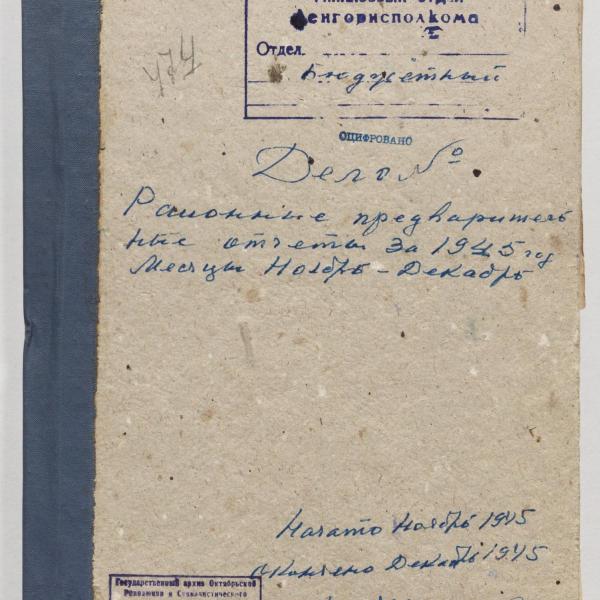 Финансовый отдел
Ленгорисполкома
Отдел
Бюджетный
474
ОЦИФРОВАНО
Дело №
Районные предваритель
ные отчеты за 1945 год
Месяцы Ноябрь - Декабрь
Начато Ноябрь 1945
Окончено Декабрь 1945
Государственный архив Октябрьской
Революции и Социалистического